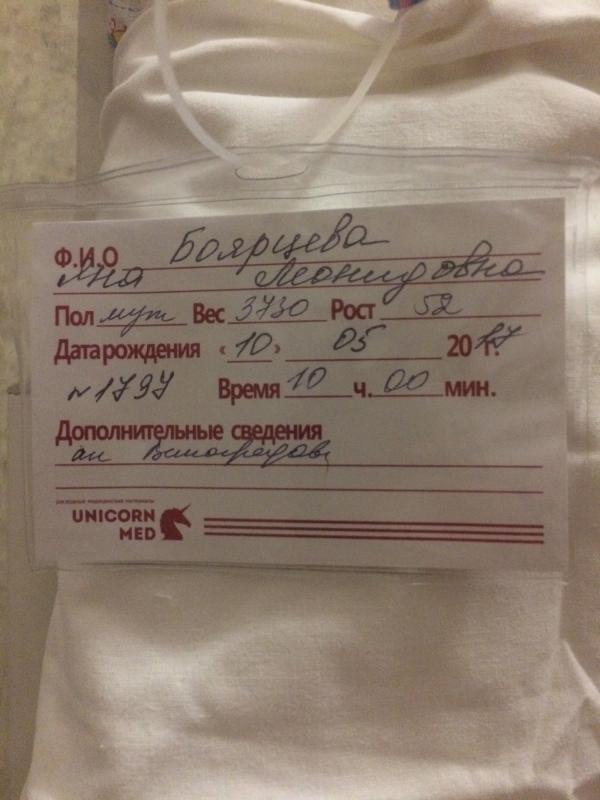 Ф.И.О Боярцева
Яна Леонидовна
Пол муж Вес 3730 Рост 52
Дата рождения «10» 05 2017г.
№1797 Время 10 ч. 00 мин.
Дополнительные сведения
ак Виноградов
расходные медицинские материалы
UNICORN
MED